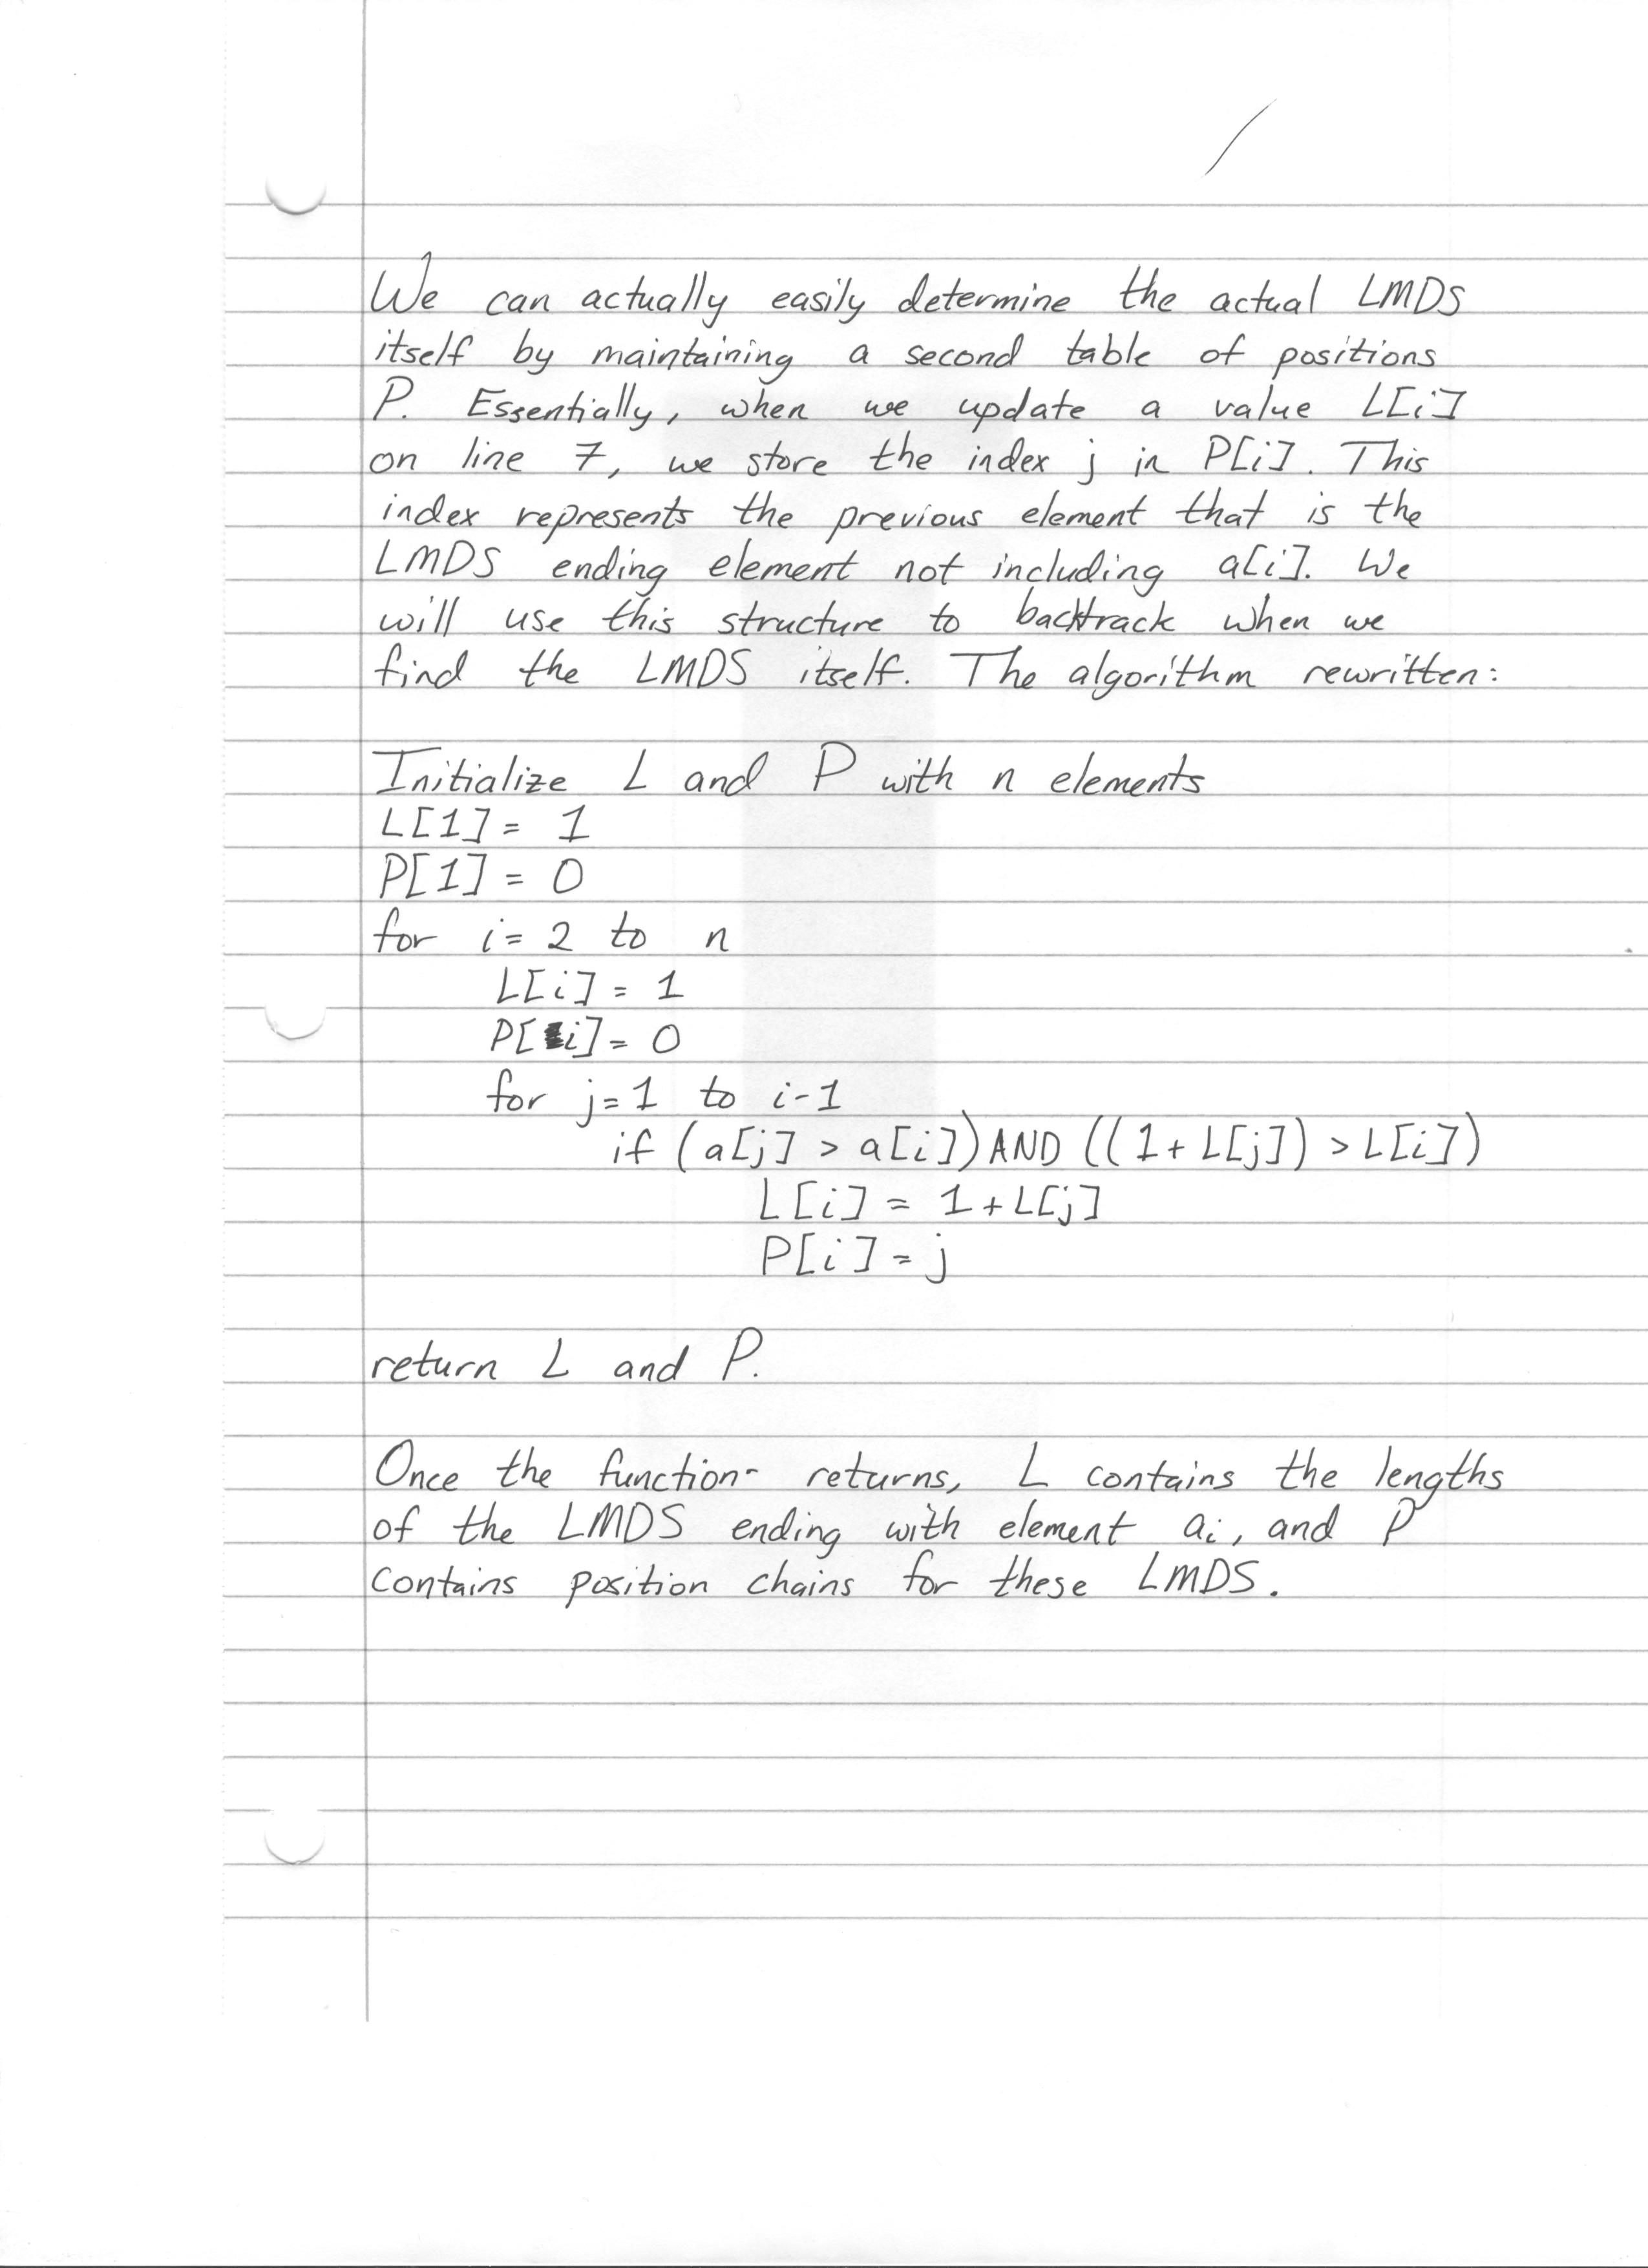 We can actually easily determine the actual LMDS
itself by maintaining a second table of positions
P. Essentially, when we update a value L[i]
on line 7, we store the index j in P[i]. This
index represents the previous element that is the
LMDS ending element not including a[i]. We
will use this structure to backtrack when we
find the LMDS itself. The algorithm rewritten:
Initialize L and P with n elements
L[1] = 1
P[1] = 0
for i = 2 to n
L[i] = 1
P[i] = 0
for j=1 to i-1
if (a[j] > a[i]) AND ((1+L[j]) > L[i])
L[i] = 1+L[j]
P[i] = j
return L and P.
Once the function returns, L contains the lengths
of the LMDS ending with element ai, and P
contains position chains for these LMDS.